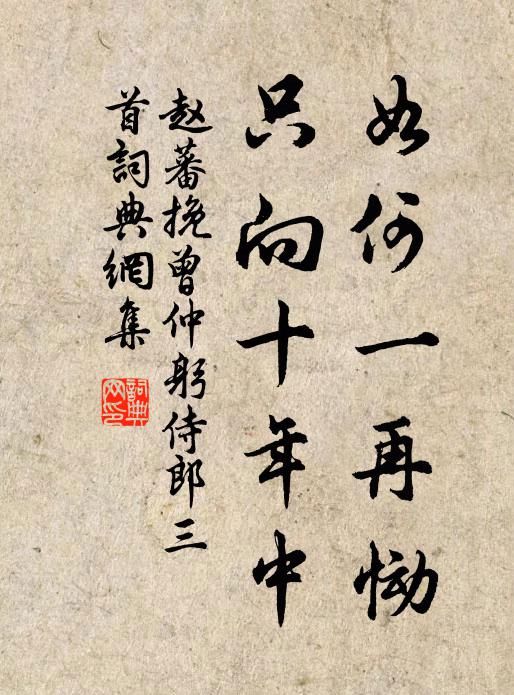 如何一再恸
只向十年中
赵蕃挽曾仲躬侍郎三
首詞典網集
詞典
网印